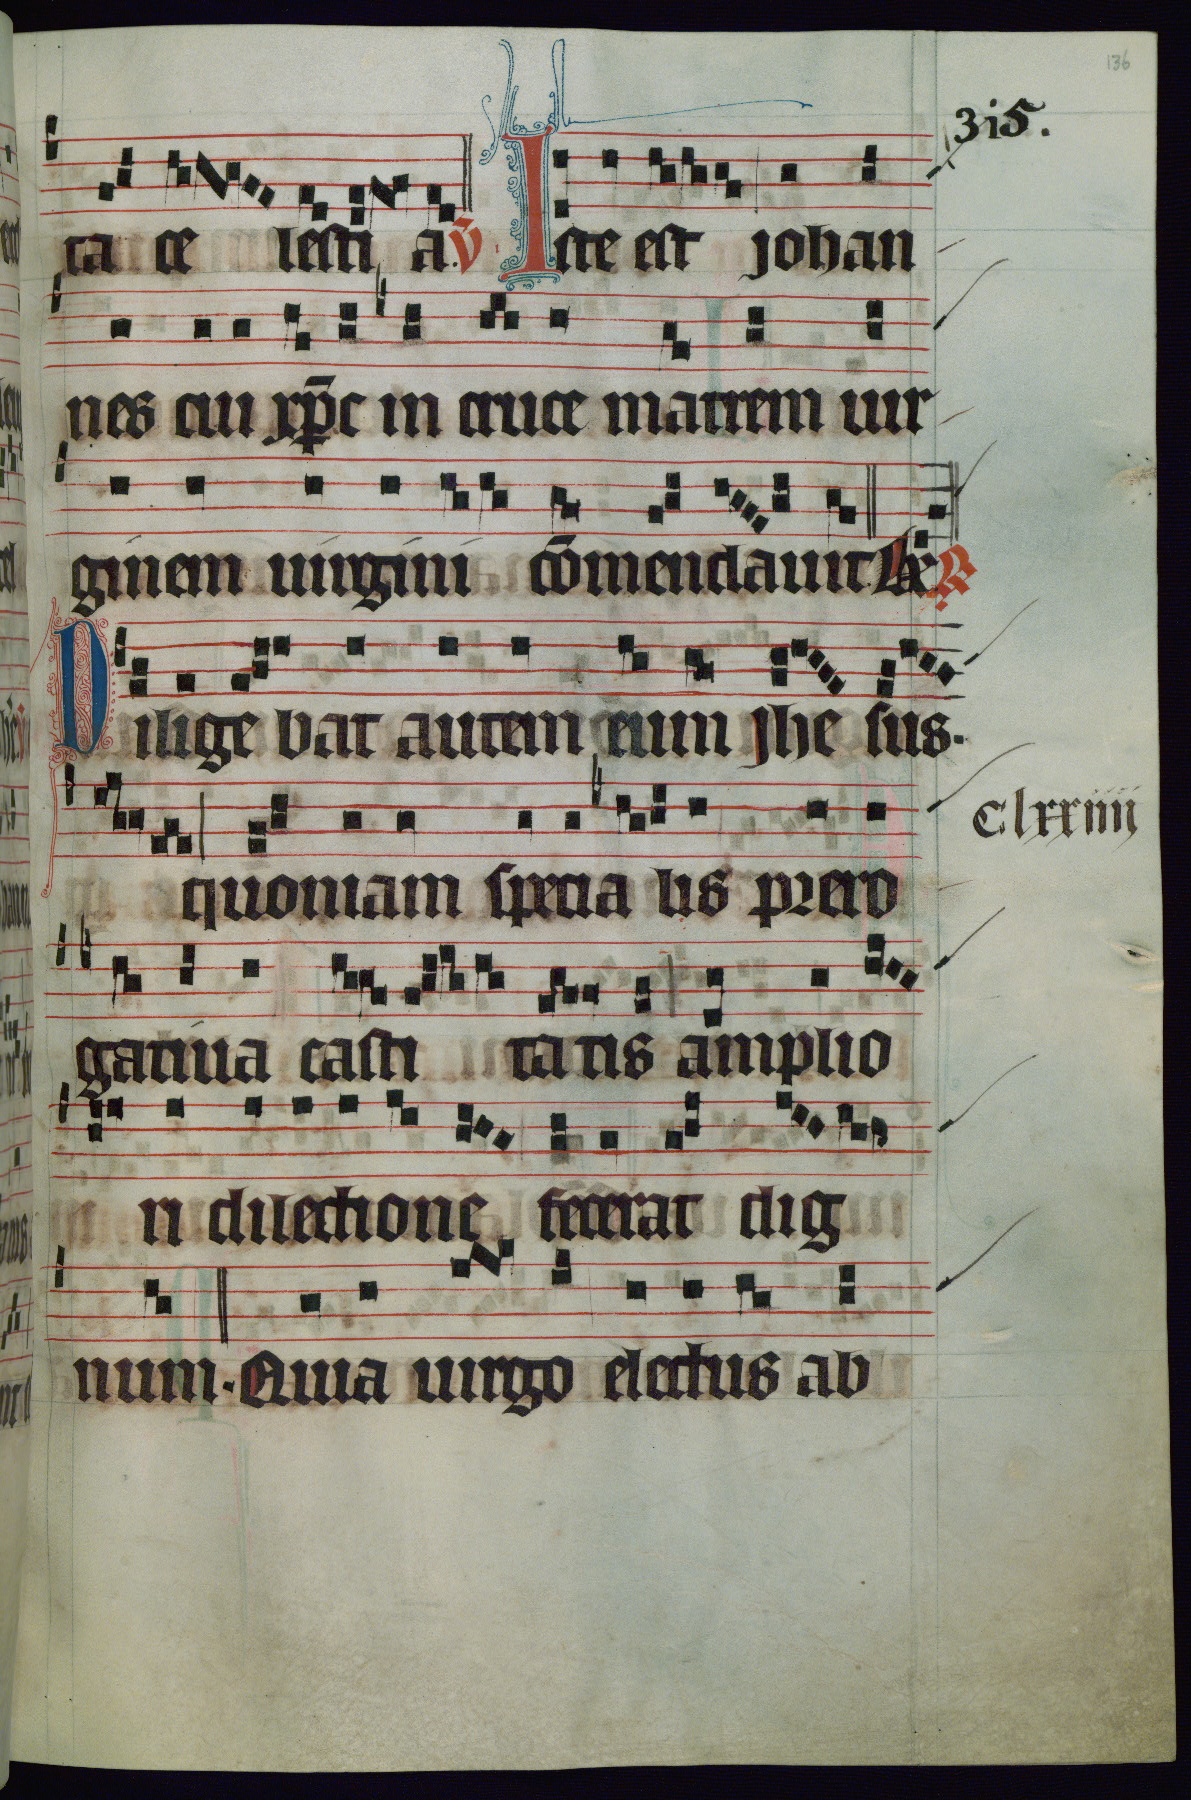 136
3i5.
ta ce lesti a. v̄ Iste est johan
nes cui xp̄c in cruce matrem uir
ginem uirgini cōmendauit
Dilige bat autem eum Jhe sus.
clxxiiii
quoniam specia lis prero
gatiua casti ta tis amplio
ri dilectione fecerat dig
num. Quia uirgo electus ab